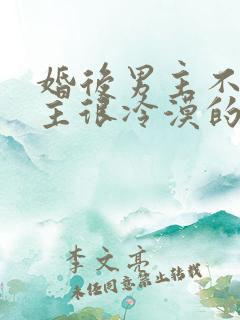 婚後男主不
主很冷漠的
李文亮
未经同意禁止转载